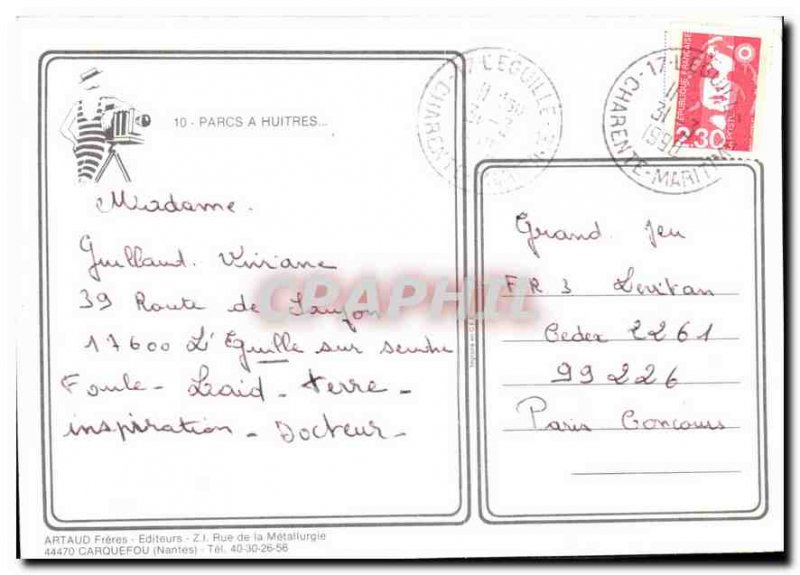 10 - PARCS A HUITRES...
Madame.
Guillaud. Viviane
39 Route de Saujon
17600 L'Eguille sur seudre
Foule - Laid - terre -
inspiration - Docteur -
ARTAUD Frères - Editeurs - Z.I. Rue de la Métallurgie
44470 CARQUEFOU (Nantes) - Tél. 40-30-26-56
17 L'EGUILLE
CHARENTE
17 - L'EGUILLE
31
1990
CHARENTE-MARITIME
RÉPUBLIQUE FRANÇAISE
2,30
Grand Jeu
F.R.3 Levitan
Cedex 2261
99226
Paris Concours
CRAPHIL